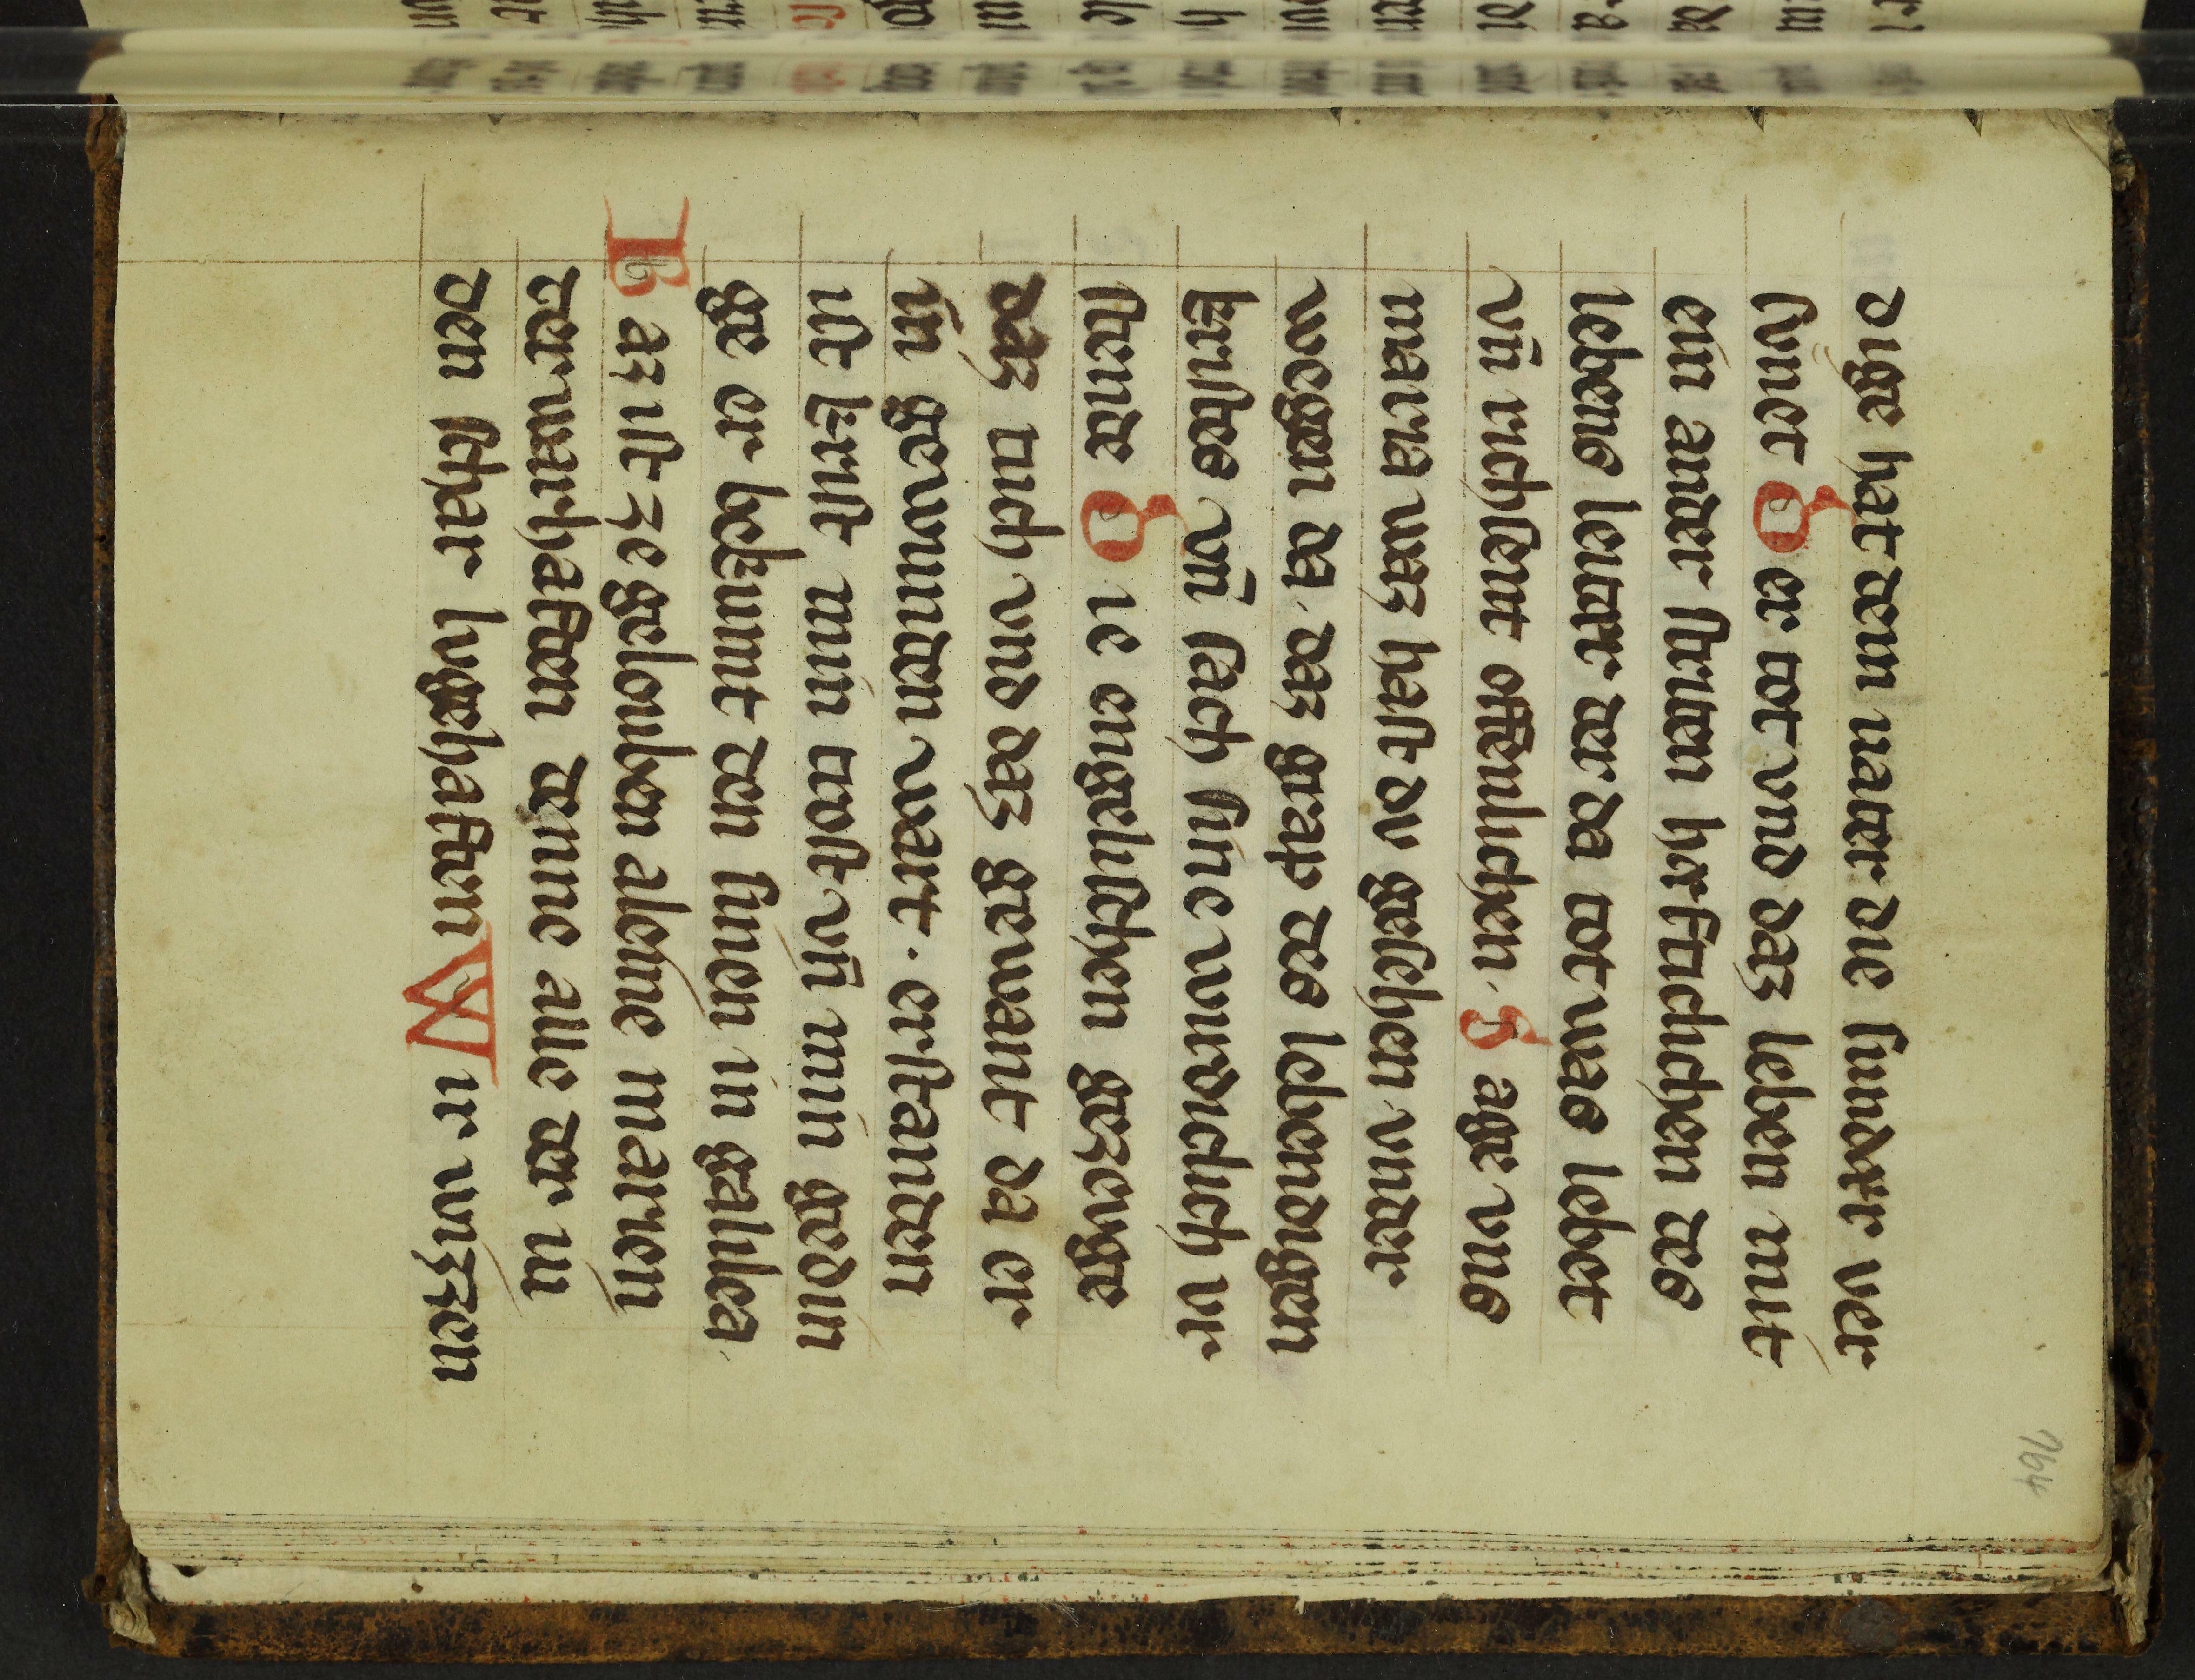 dige hat dem vater die sunder ver
sv́net Der tot vnd daz leben mit
ein ander striten herftichichen des
lebens leiter der da tot was lebet
vn̄ richsent offenlichen. Sage vns
maria waz hast dv gesehen vnder
wegen da. daz grap des lebendigen
kristes vn̄ sach sine wirdich vr
stende Die engelischen gezevge
daz tuch vnd daz gewant da er
in gewunden wart. erstanden
ist krist min trost vn̄ min gedin
ge er bekumt den sinen in galilea
Baz ist ze gelouben aleine marien
der warhaften denne alle der iu
den schar lvgehaften Wir wizzen
764